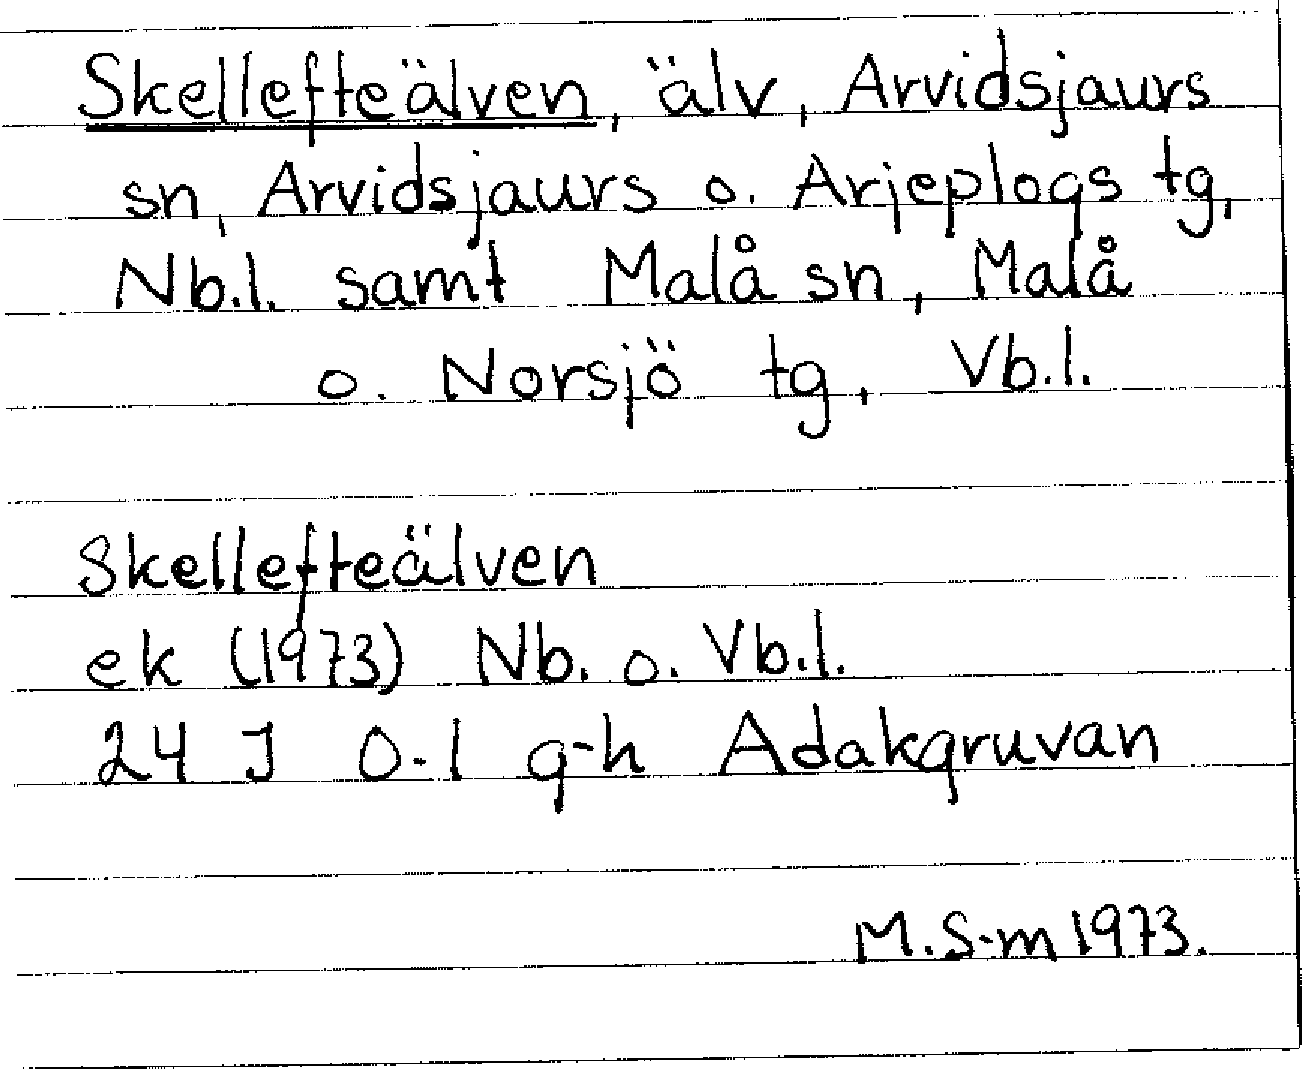 Skellefteälven, älv, Arvidsjaurs
sn, Arvidsjaurs o. Arjeplogs tg,
Nb.l. samt Malå sn, Malå
o. Norsjö tg, Vb.l.
Skellefteälven
ek (1973) Nb. o. Vb.l.
24 J 0-1 g-h Adakgruvan
M.S-m 1973.